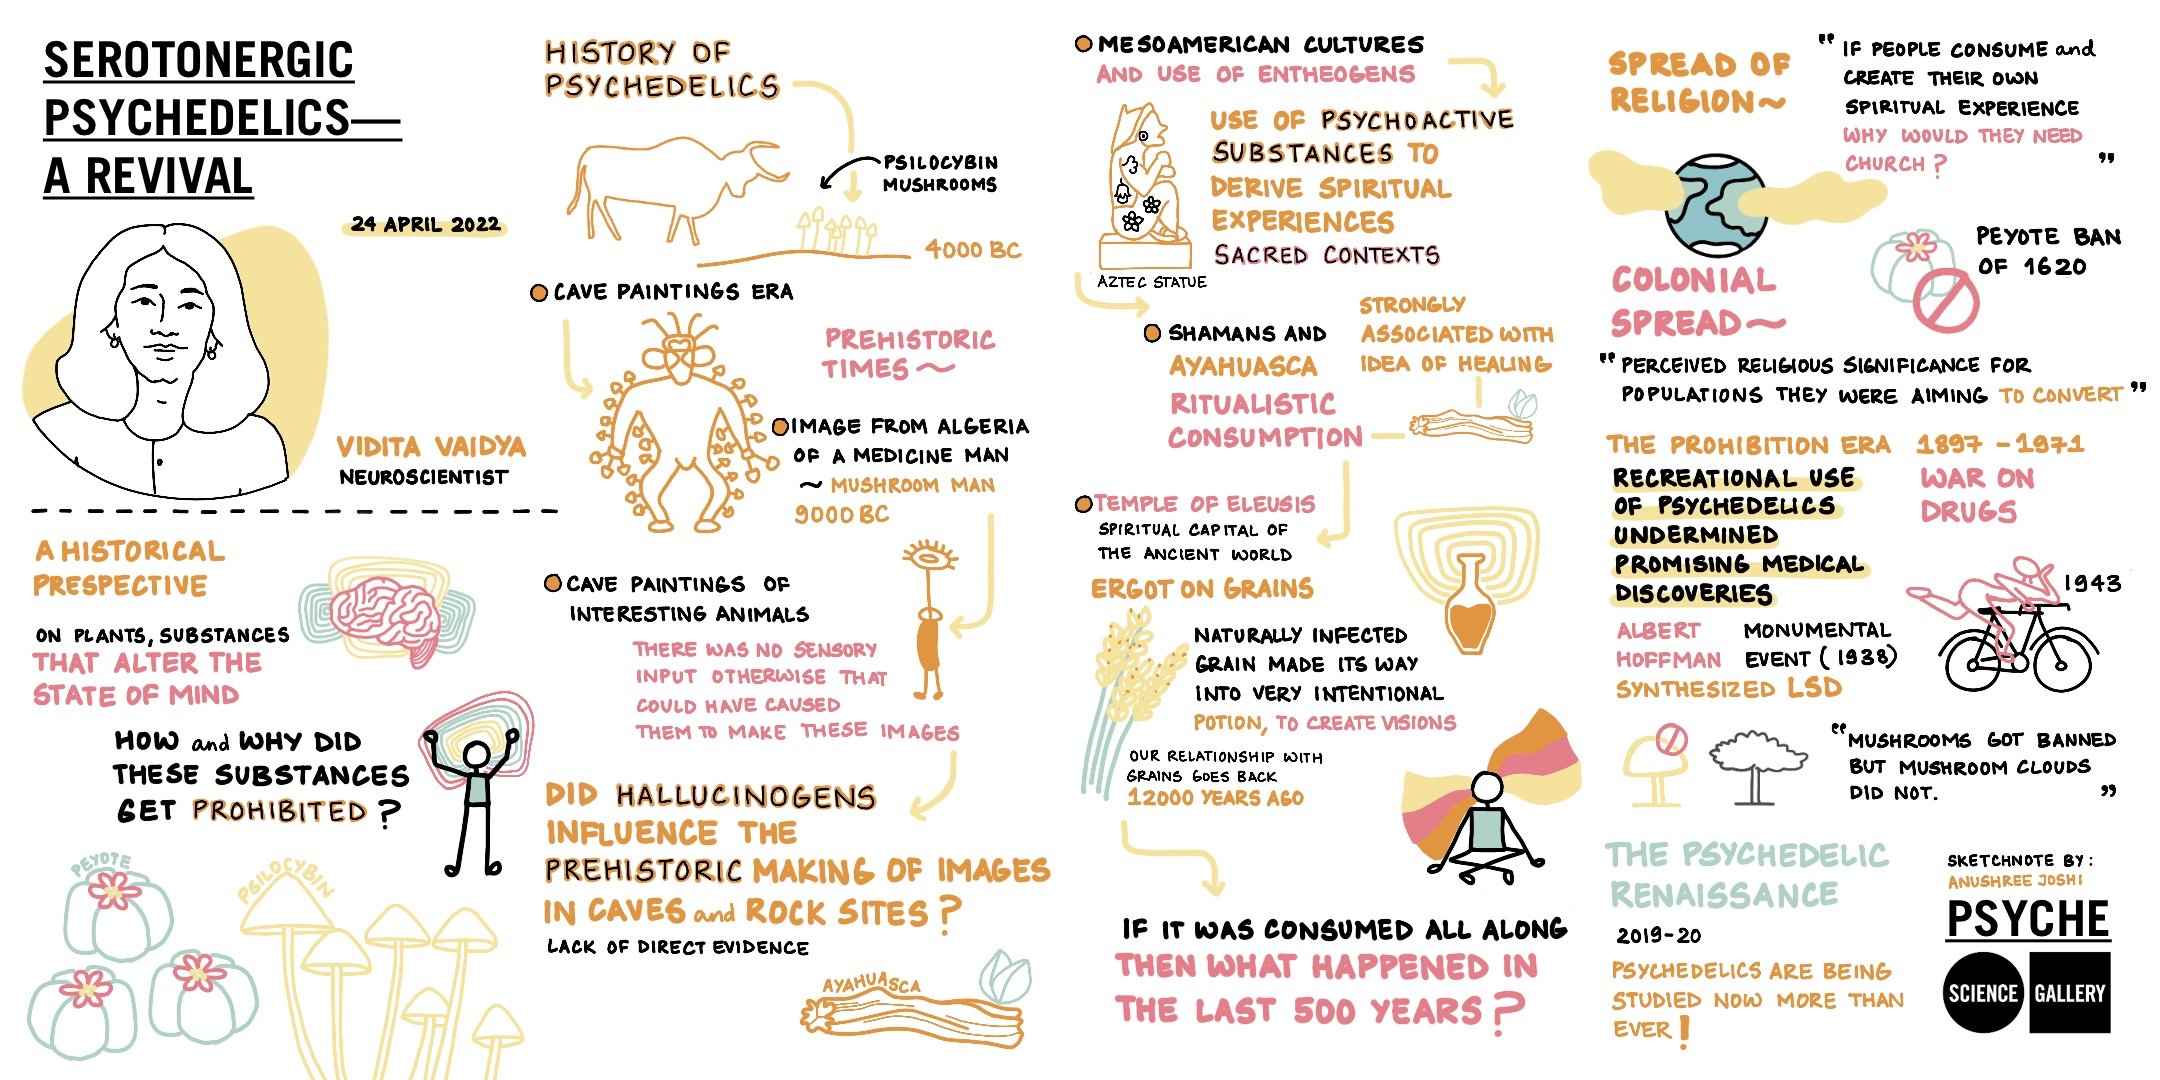 SEROTONERGIC
PSYCHEDELICS—
A REVIVAL
24 APRIL 2022
VIDITA VAIDYA
NEUROSCIENTIST
A HISTORICAL
PRESPECTIVE
ON PLANTS, SUBSTANCES
THAT ALTER THE
STATE OF MIND
HOW and WHY DID
THESE SUBSTANCES
GET PROHIBITED?
PEYOTE
PSILOCYBIN
HISTORY OF
PSYCHEDELICS
PSILOCYBIN
MUSHROOMS
4000 BC
CAVE PAINTINGS ERA
PREHISTORIC
TIMES ~
IMAGE FROM ALGERIA
OF A MEDICINE MAN
~ MUSHROOM MAN
9000 BC
CAVE PAINTINGS OF
INTERESTING ANIMALS
THERE WAS NO SENSORY
INPUT OTHERWISE THAT
COULD HAVE CAUSED
THEM TO MAKE THESE IMAGES
DID HALLUCINOGENS
INFLUENCE THE
PREHISTORIC MAKING OF IMAGES
IN CAVES and ROCK SITES?
LACK OF DIRECT EVIDENCE
AYAHUASCA
MESOAMERICAN CULTURES
AND USE OF ENTHEOGENS
USE OF PSYCHOACTIVE
SUBSTANCES TO
DERIVE SPIRITUAL
EXPERIENCES
SACRED CONTEXTS
AZTEC STATUE
SHAMANS AND
AYAHUASCA
RITUALISTIC
CONSUMPTION
STRONGLY
ASSOCIATED WITH
IDEA OF HEALING
TEMPLE OF ELEUSIS
SPIRITUAL CAPITAL OF
THE ANCIENT WORLD
ERGOT ON GRAINS
NATURALLY INFECTED
GRAIN MADE ITS WAY
INTO VERY INTENTIONAL
POTION, TO CREATE VISIONS
OUR RELATIONSHIP WITH
GRAINS GOES BACK
12000 YEARS AGO
IF IT WAS CONSUMED ALL ALONG
THEN WHAT HAPPENED IN
THE LAST 500 YEARS?
SPREAD OF
RELIGION~
"IF PEOPLE CONSUME and
CREATE THEIR OWN
SPIRITUAL EXPERIENCE
WHY WOULD THEY NEED
CHURCH? "
PEYOTE BAN
OF 1620
COLONIAL
SPREAD~
"PERCEIVED RELIGIOUS SIGNIFICANCE FOR
POPULATIONS THEY WERE AIMING TO CONVERT"
THE PROHIBITION ERA 1897 - 1971
RECREATIONAL USE
OF PSYCHEDELICS
UNDERMINED
PROMISING MEDICAL
DISCOVERIES
WAR ON
DRUGS
1943
ALBERT
HOFFMAN
SYNTHESIZED LSD
MONUMENTAL
EVENT (1938)
"MUSHROOMS GOT BANNED
BUT MUSHROOM CLOUDS
DID NOT. "
THE PSYCHEDELIC
RENAISSANCE
2019-20
PSYCHEDELICS ARE BEING
STUDIED NOW MORE THAN
EVER!
SKETCHNOTE BY:
ANUSHREE JOSHI
PSYCHE
SCIENCE GALLERY